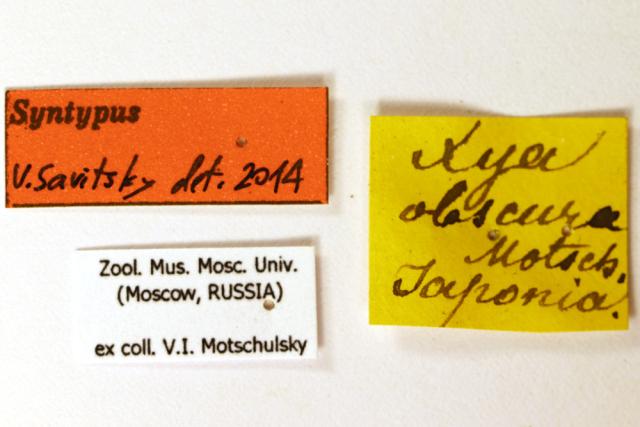 Syntypus
V. Savitsky det. 2014
Zool. Mus. Mosc. Univ.
(Moscow, RUSSIA)
ex coll. V.I. Motschulsky
Xya
obscura
Motsch.
Japonia.